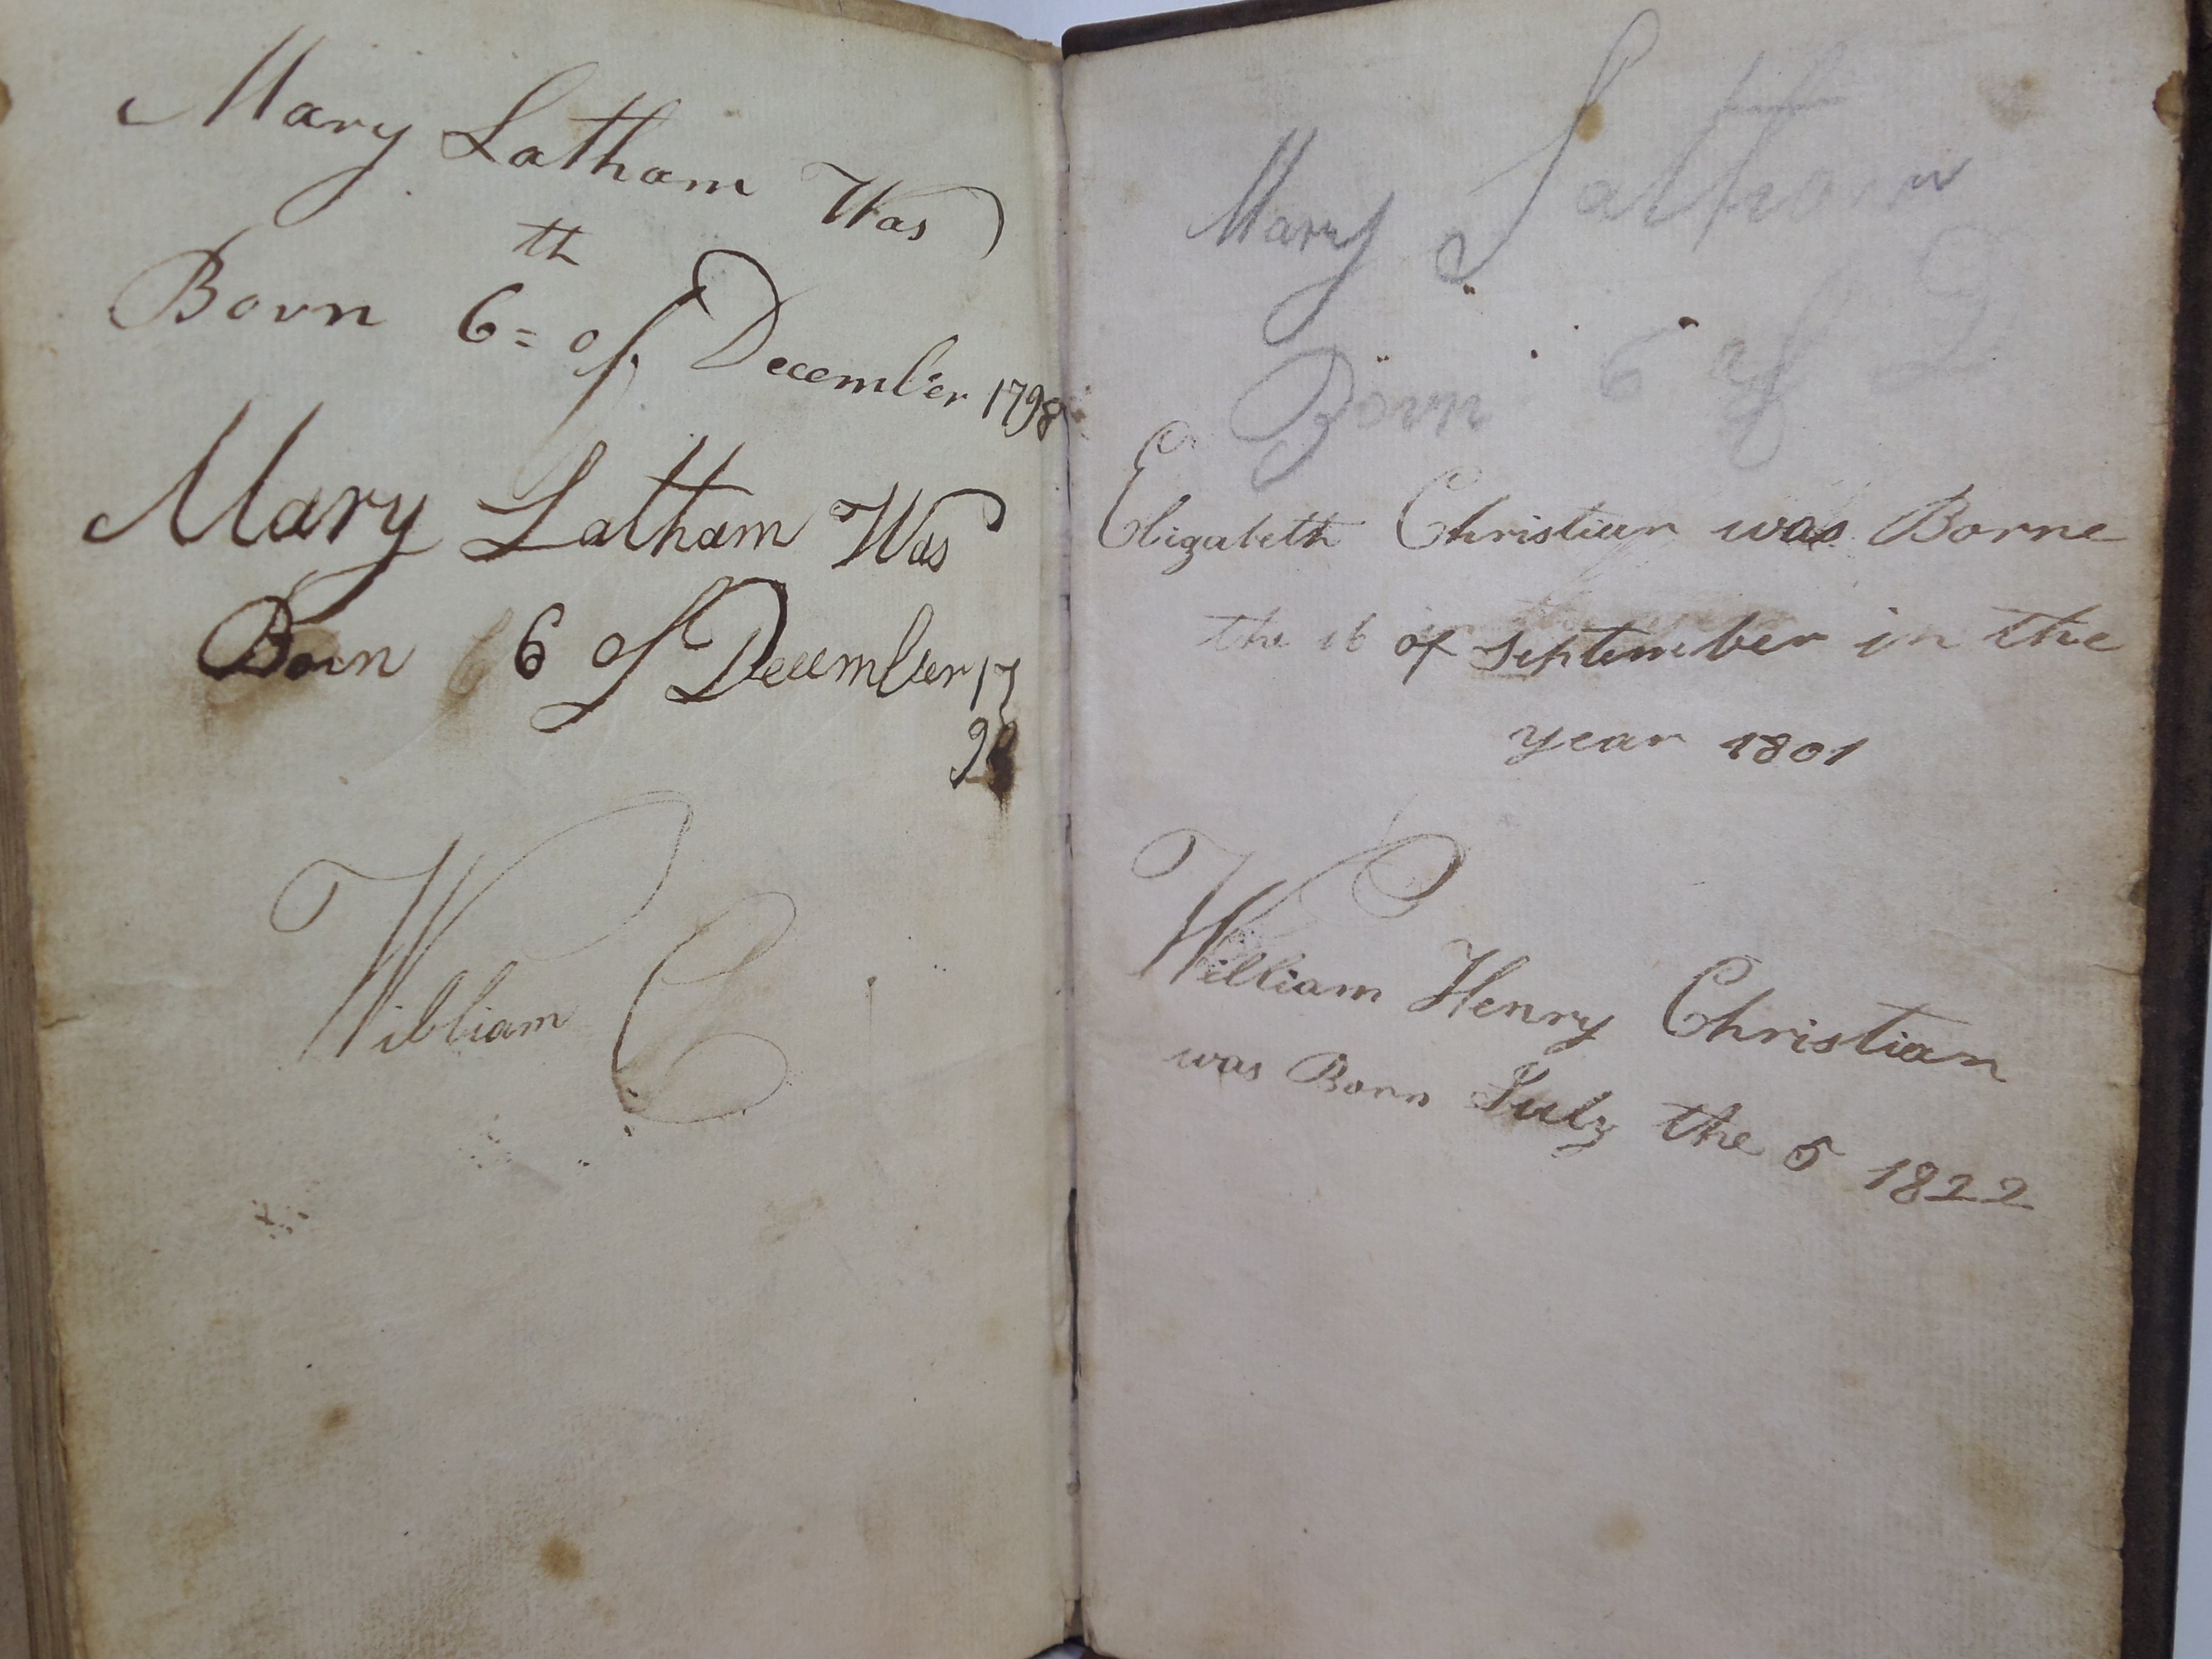 Mary Latham Was
Born 6=th of December 1798
Mary Latham Was
Born 6 of December 17
98
William C
Mary Latham
Born 6 of D
Elizabeth Christian was Borne
the 16 of September in the
year 1801
William Henry Christian
was Born July the 5 1822